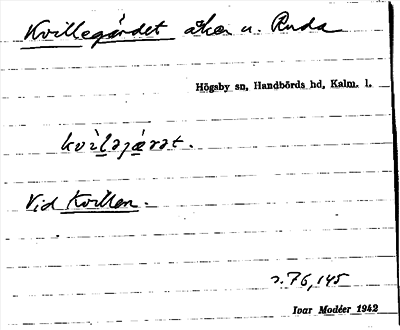 Kvillegärdet åker u. Ruda
Högsby sn, Handbörds hd, Kalm. l.
Vid Kvillen.
s. 76, 145
Ivar Modéer 1942